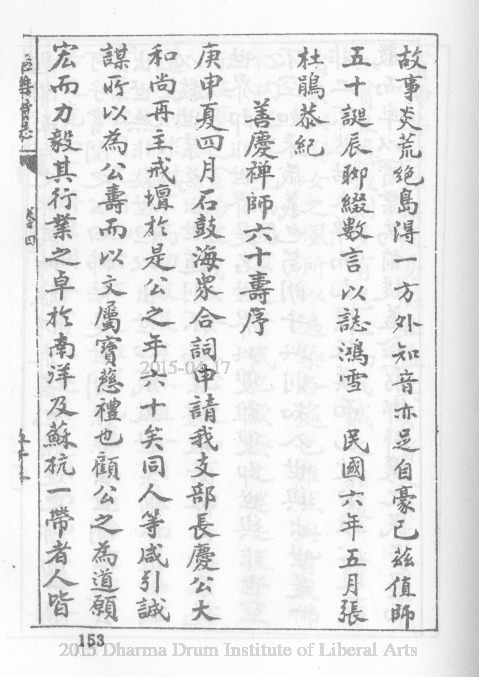 故事炎荒絕島得一方外知音亦足自豪已茲值師
五十誕辰聊綴數言以誌鴻雪　民國六年五月張
杜鵑恭紀
善慶禪師六十壽序
庚申夏四月石鼓海眾合詞申請我支部長慶公大
和尚再主戒壇於是公之年六十矣同人等咸引誠
謀所以為公壽而以文屬寶慈禮也顧公之為道願
宏而力毅其行業之卓於南洋及蘇杭一帶者人皆
卷四
153
2015-04-17
2015 Dharma Drum Institute of Liberal Arts